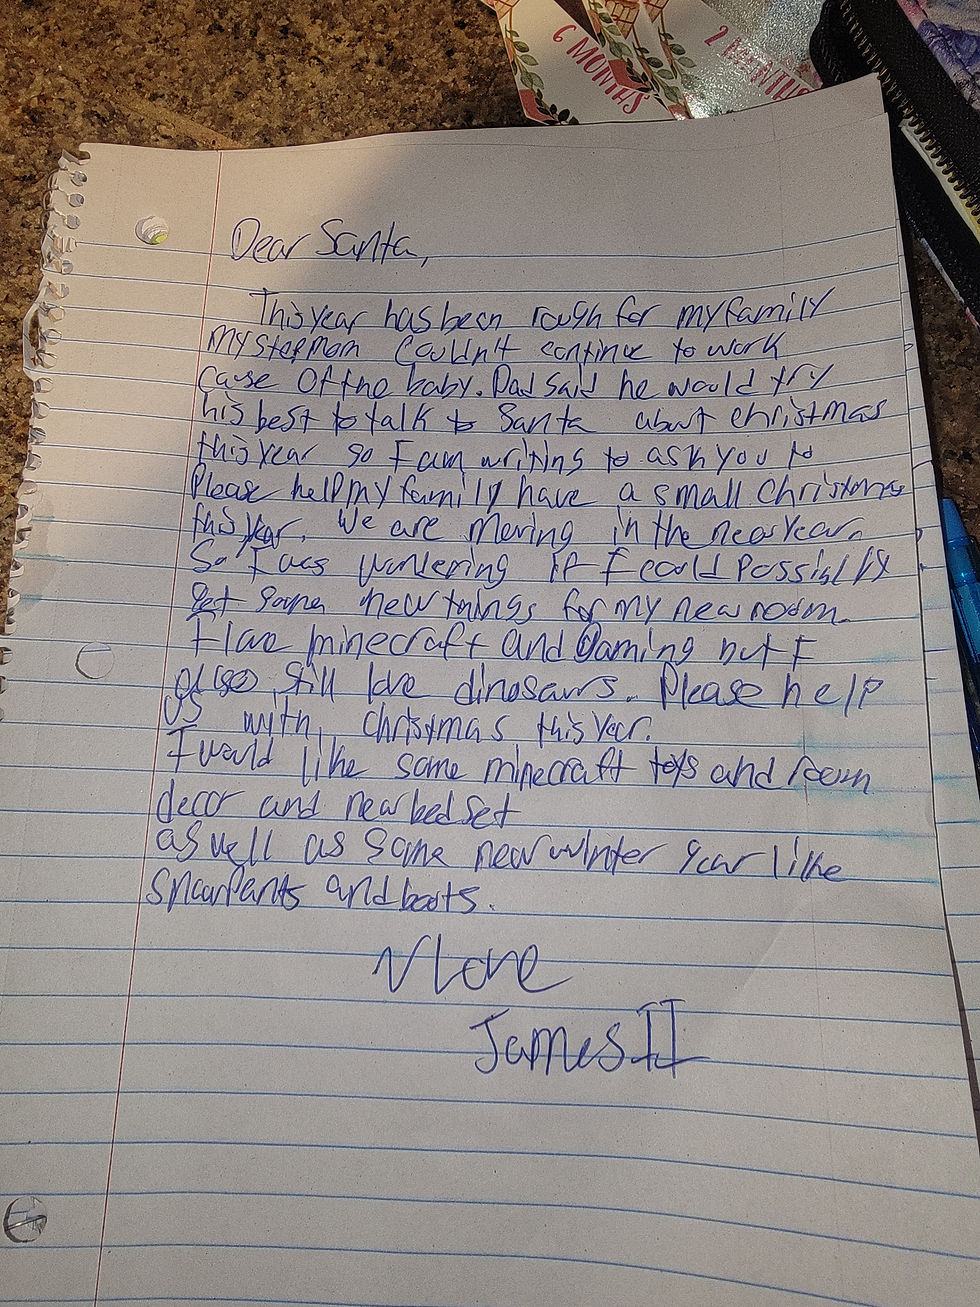 6 MONTHS
2 MONTHS
Dear Santa,
This year has been rough for my family
my stepmom couldn't continue to work
cause of the baby. Dad said he would try
his best to talk to Santa about christmas
this year so I am writing to ask you to
Please help my family have a small christmas
this year. We are moving in the new year.
So I was wondering if I could possibly
get some new things for my new room.
I love minecraft and Gaming but I
also still love dinosaurs. Please help
us with christmas this year.
I would like some minecraft toys and room
decor and new bed set
as well as some new winter gear like
snowpants and boots.
Love
James II